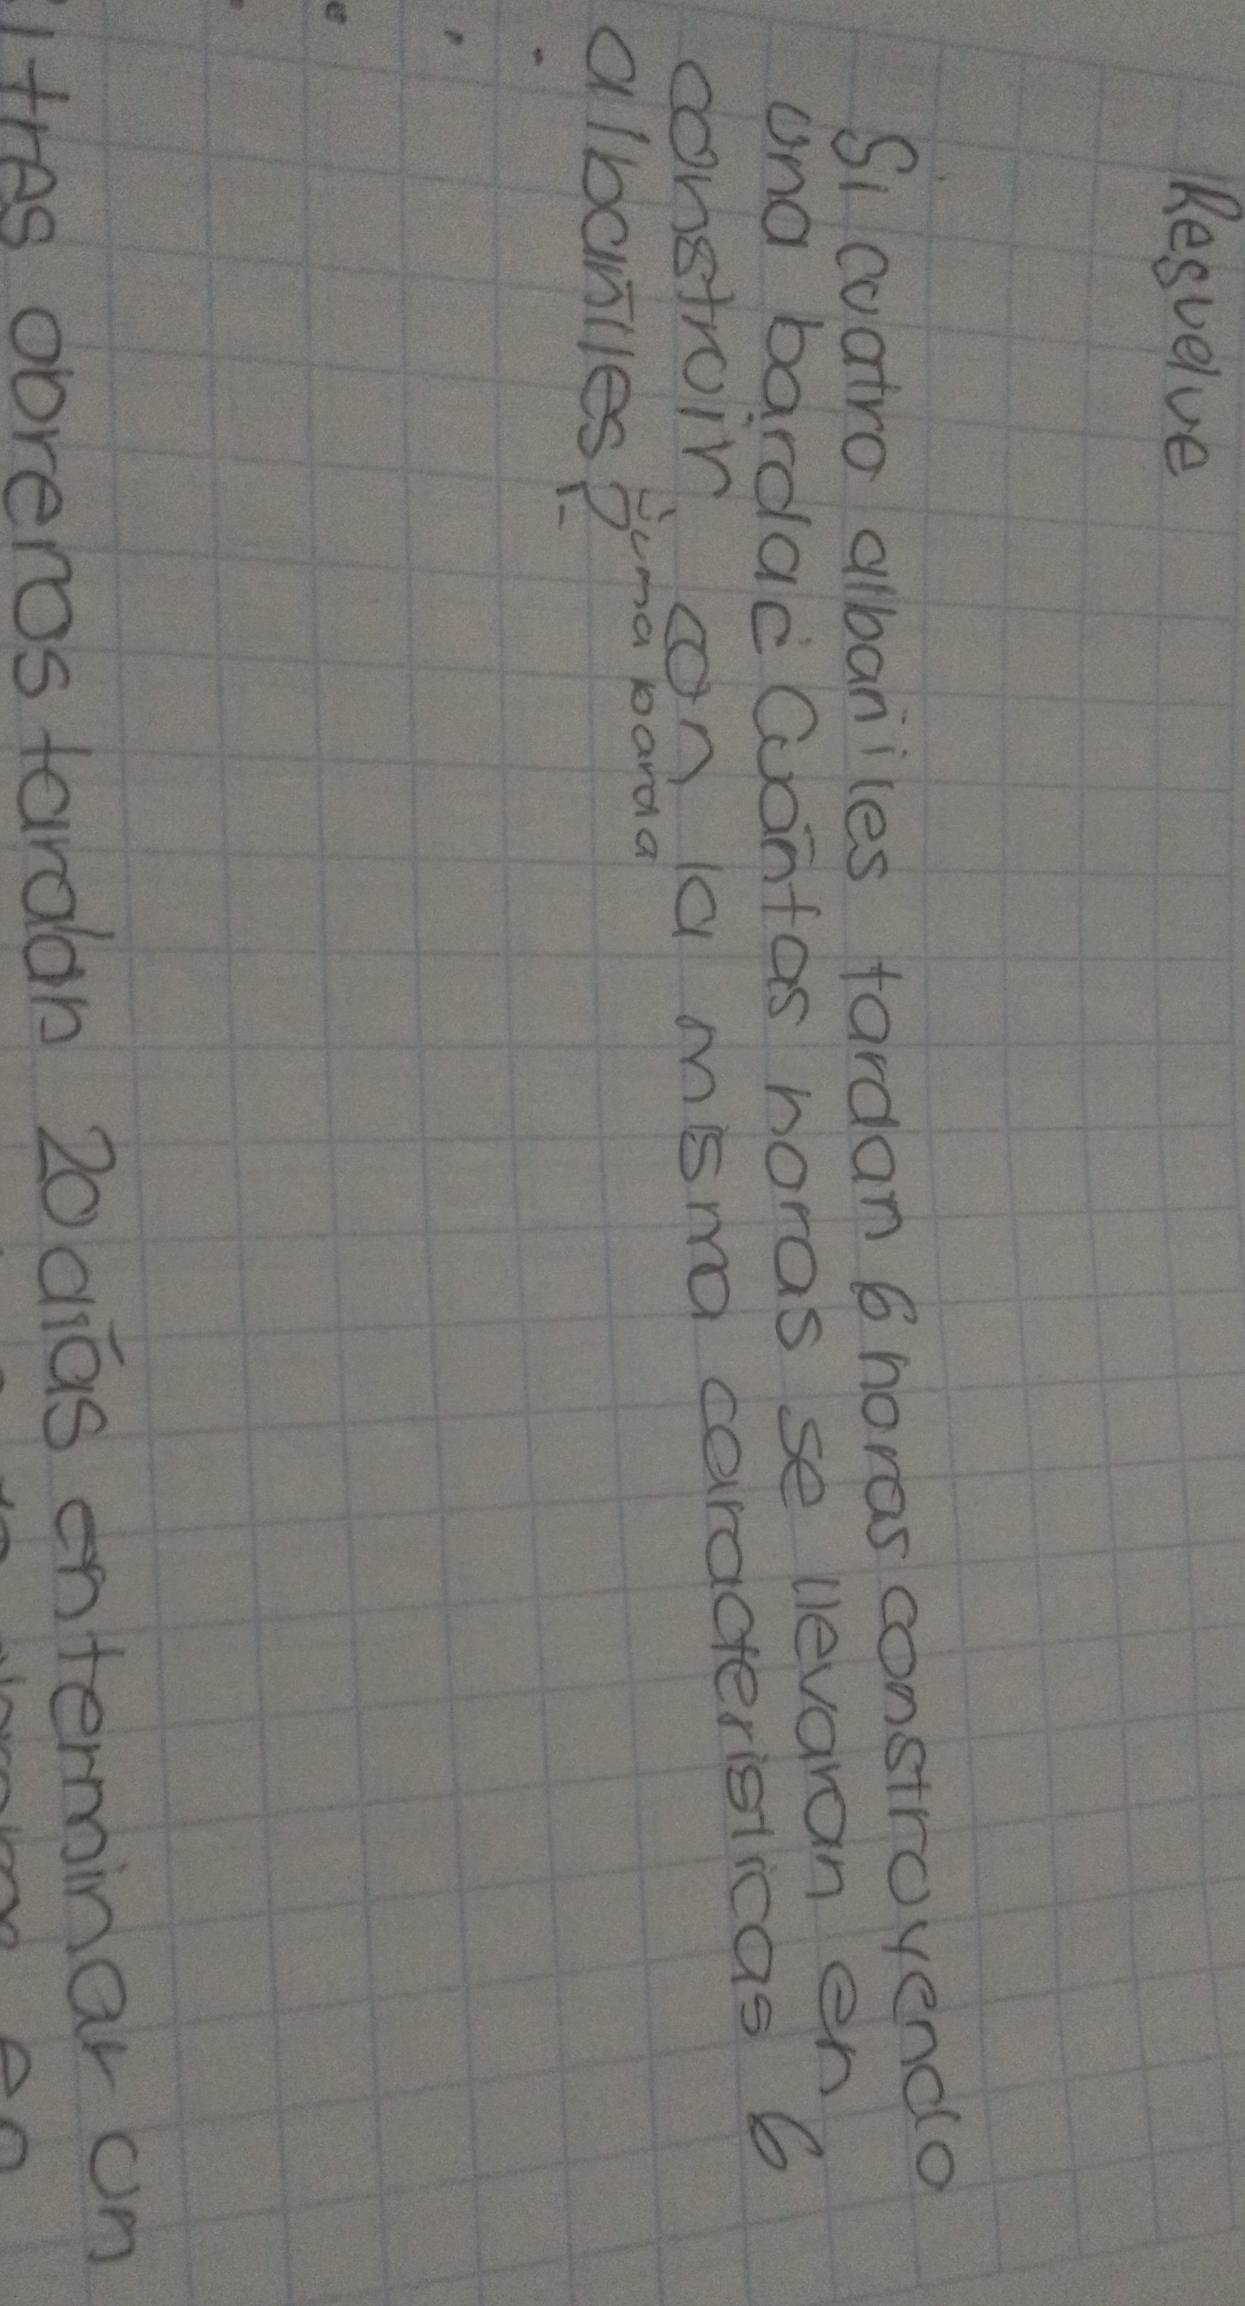 Resuelve
Si cuatro albañiles tardan 6 horas construyendo
una barda ¿Cuántas horas se llevaran en
construir con la misma caracteristicas 6
albañiles? una barda
tres obreros tardan 20 días en terminar un